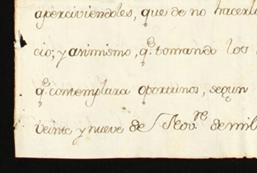 aperciviendoles, que de no hacerlo
cio; y asimismo, qe. tomando los
qe. contemplara oportunos, segun
veinte y nueve de Novre. de mil